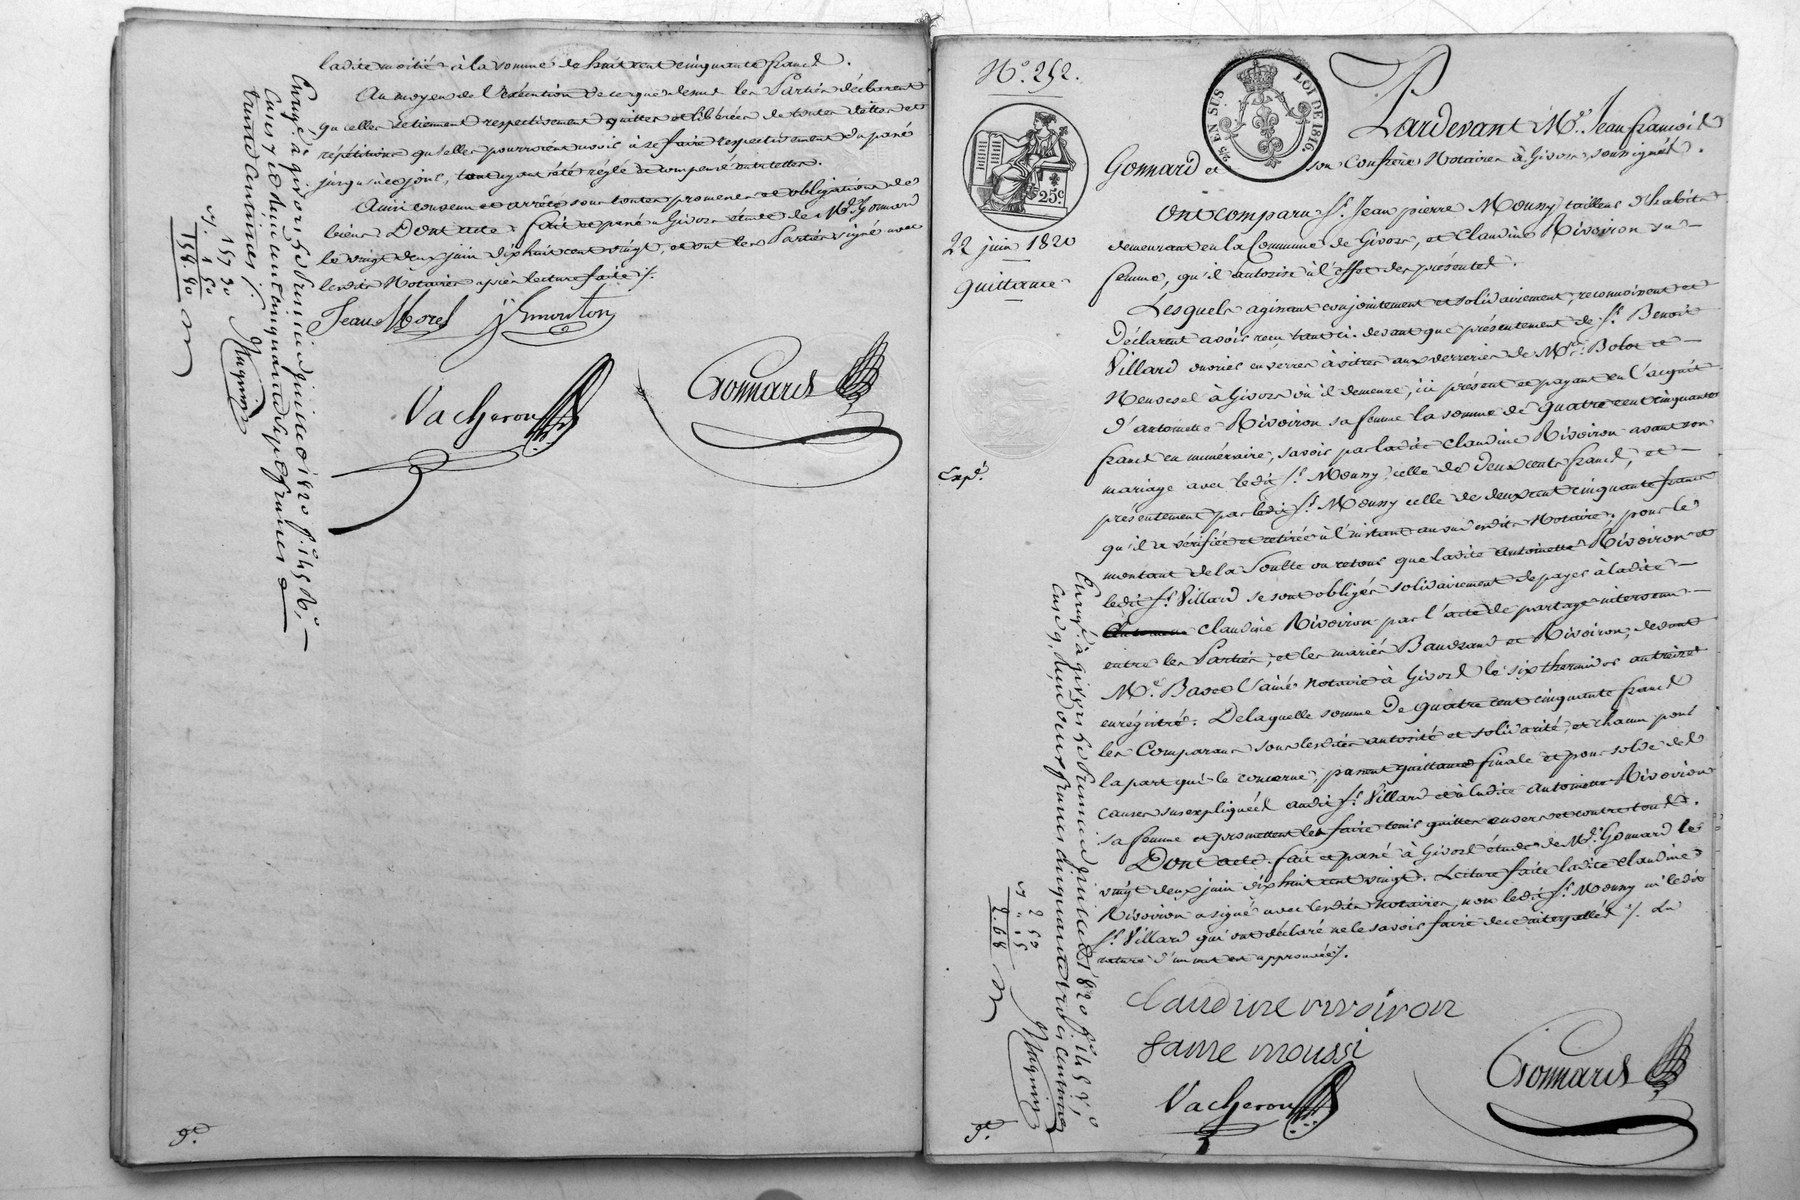 ladite moitié à la somme de huit cent cinquante francs.
Au moyen de l'exécution de ce que dessus les Parties déclarent
qu'elles se tiennent respectivement quittes et libérées de toutes dettes et
répétitions qu'elles pourroient avoir à se faire respectivement du passé
jusqu'à ce jour, tout ayant été réglé et compensé entr'elles.
Ainsi convenu et arrêté sous toutes promesses et obligations de
biens. Dont acte: fait et passé à Givors étude de Md. Gonnard
le vingt deux juin dix huit cent vingt, et ont les Parties signé avec
lesdits Notaires après lecture faite /.
Jean Morel JJ mouton
Vacheron
Gonnard
Enreg. à givors le premier juillet 1820 f.
trente centimes /.
Magnin
157 30
1 50
158.80
N°. 252.
25 EN SUS LOI DE 1816.
25c
22 juin 1820
quittance
Exp.
Pardevant Me. Jean françois
Gonnard et son Confrère Notaires à Givors, soussignés.
Ont comparu Sr. Jean pierre Moussy tailleur d'habits
demeurant en la Commune de Givors, et Claudine Rivoiron sa
femme, qu'il autorise à l'effet des présentes.
Lesquels agissant conjointement et solidairement, reconnoissent et
déclarent avoir reçu tant ci-devant que présentement de Sr. Benoit
Villard ouvrier en verres à vitres aux verreries de Mrs. Bolot et
Neuvesel à Givors où il demeure, ici présent et payant en l'acquit
d'antoinette Rivoiron sa femme la somme de quatre cent cinquante
francs en numéraire, savoir par ladite Claudine Rivoiron avant son
mariage avec ledit Sr. Moussy celle de deux cents francs, et
présentement par ledit Sr. Moussy celle de deux cent cinquante francs
qu'il a vérifiée et retirée à l'instant au vu desdits Notaires; pour le
montant de la Soulte ou retour que ladite antoinette Rivoiron et
ledit Sr. Villard se sont obligés solidairement de payer à ladite
Claudine Rivoiron par l'acte de partage intervenu
entre les Parties, et les mariés Baudrand et Rivoiron, devant
Me. Basset l'ainé notaire à Givors le six thermidor an treize
enregistré. De laquelle somme de quatre cent cinquante francs
les Comparans sous lesdites autorité et solidarité, et chacun pour
la part qui le concerne, passent quittance finale et pour solde des
causes susexpliquées audit Sr. Villard et à ladite antoinette Rivoiron
sa femme et promettent les faire tenir quittes envers et contre tous.
Dont acte: fait et passé à Givors étude de Md. Gonnard le
vingt deux juin dix huit cent vingt. Lecture faite ladite Claudine
Rivoiron a signé avec lesdits notaires, non ledit Sr. Moussy ni ledit
Sr. Villard qui ont déclaré ne le savoir faire de ce interpellés /. La
rature d'un mot est approuvée /.
Claudine rivoiron
fame moussi
Vacheron
Gonnard
Enreg. à givors le premier juillet 1820 f.
Reçu deux francs cinquante trois centimes
Magnin